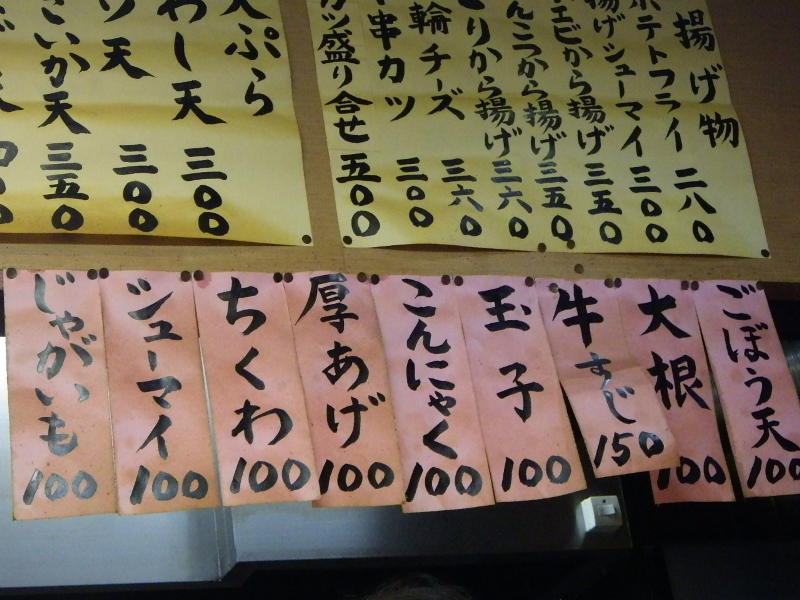 揚げ物
ポテトフライ 二八〇
揚げシューマイ 三〇〇
エビから揚げ 三五〇
んこつから揚げ 三五〇
りから揚げ 三六〇
輪チーズ 三六〇
串カツ 三〇〇
カツ盛り合せ 五〇〇
天ぷら
わし天 三〇〇
天 三〇〇
いか天 三五〇
ごぼう天 100
大根 100
牛すじ 150
玉子 100
こんにゃく 100
厚あげ 100
ちくわ 100
シューマイ 100
じゃがいも 100